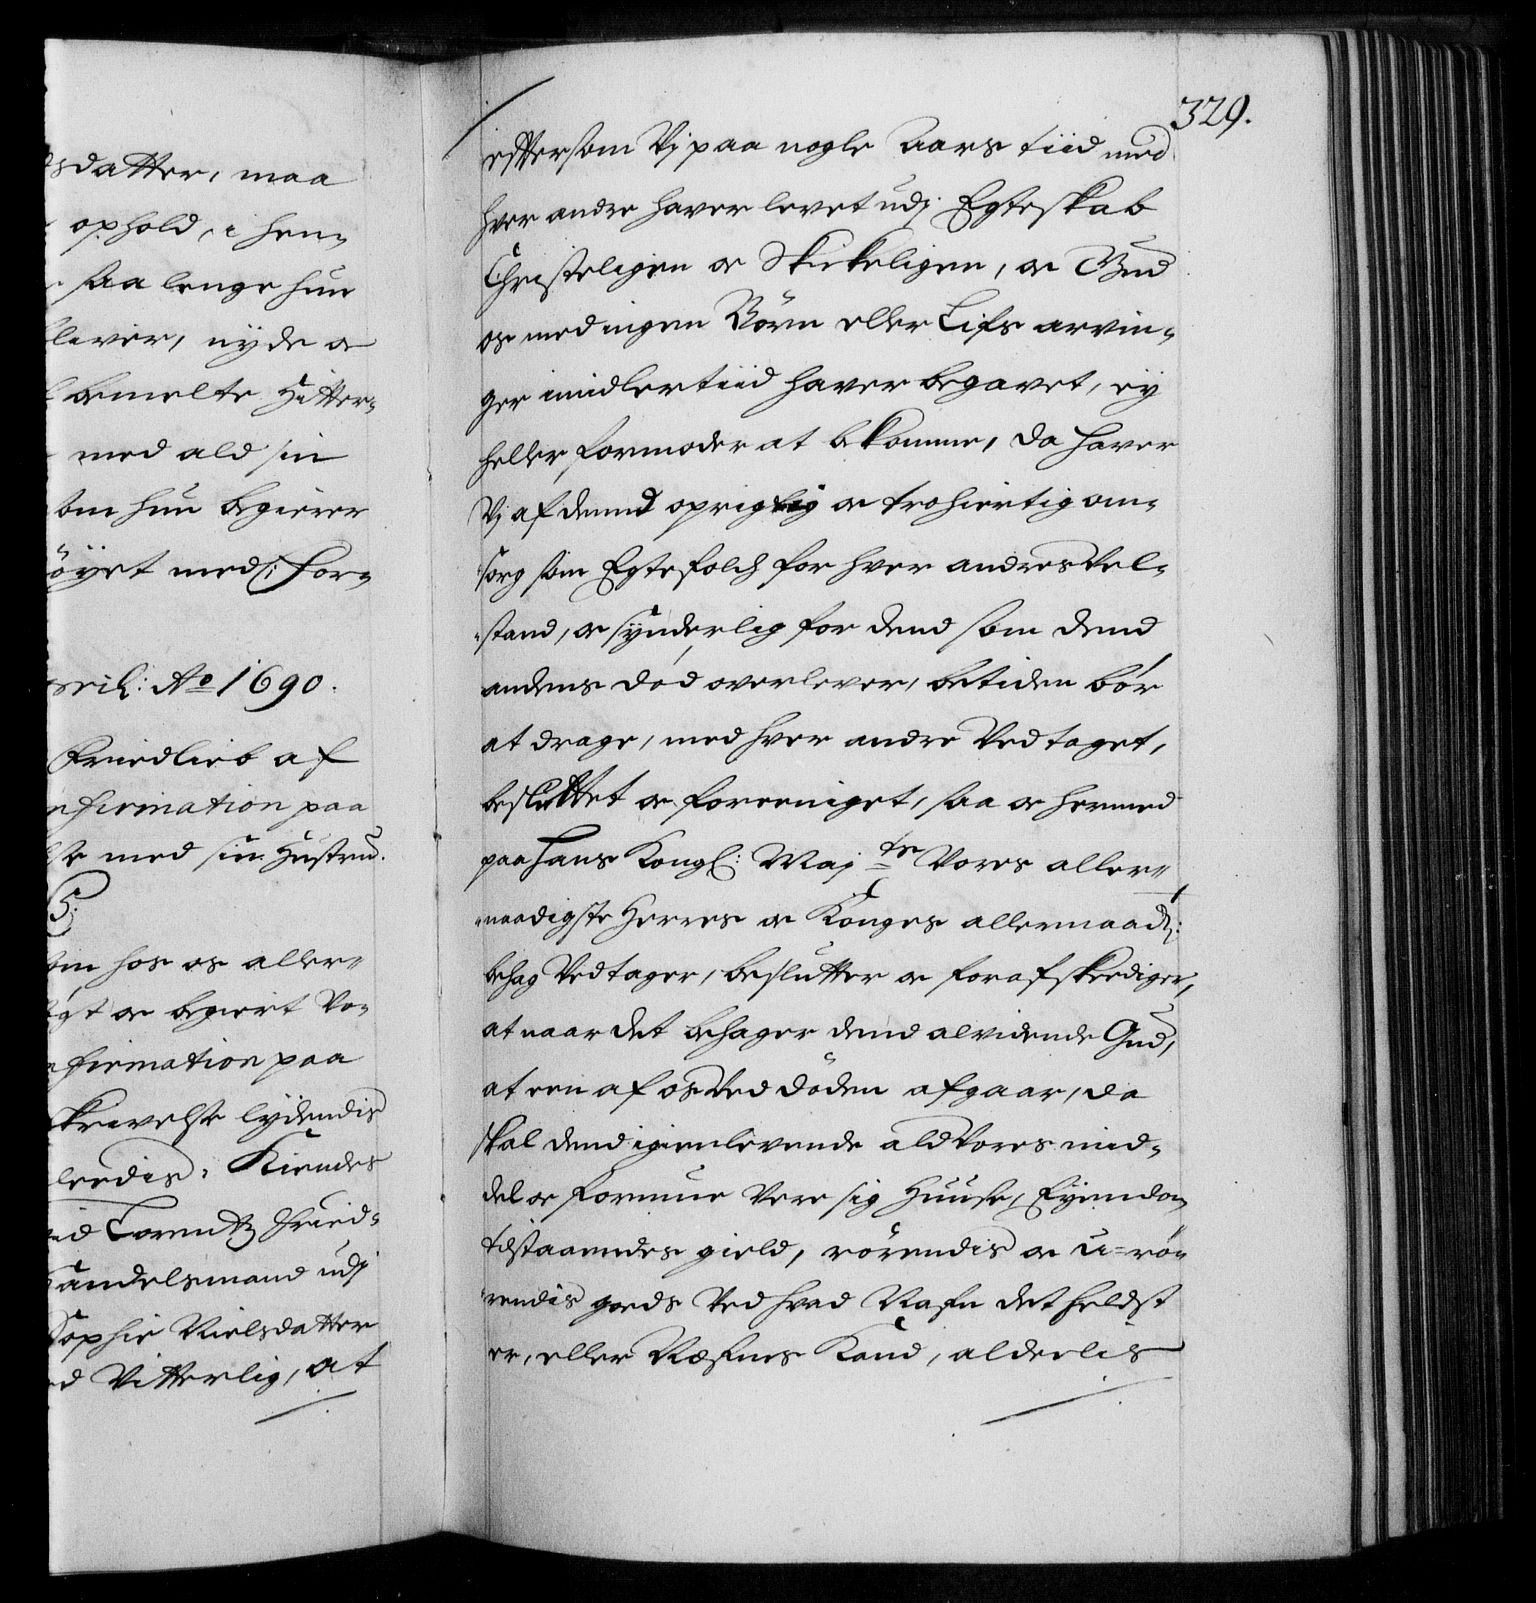 sdatter, maa
ophold, i hen-
saa lenge hun
lever, nyde oc
bemelte Hitter-
med ald sin
om hun begierer
öyet med: For-
pril: Ao 1690.
Friedlieb af
nfirmation paa
se med sin Hustrue.
G 5.
om hos os aller-
igt oc begiert Vo-
nfirmation paa
skrevelse lydendis
leedis, Kiendes
Lorentz Fried-
handelsmand udj
Sophie Nielsdatter
Vitterlig, at
329.
eftersom Vj paa nogle Aars tiid med
hver andre haver levet udj Egteskab
Christeligen oc Skickeligen, oc Gud
os med ingen Börn eller Lifs arvin-
ger imidlertiid haver begavet, ey
heller formoder at bekomme, da haver
Vj af dend oprigtig oc trohiertig om-
sorg som Egtefolch for hver andres Vel-
stand, oc synderlig for dend som dend
andens död overlever, betiden bör
at drage, med hver andre Vedtaget,
besluttet oc foreeniget, saa oc hermed
paa Hans Kongl: Maj ts Vores aller-
naadigste Herres oc Konges allernaad:
behag Vedtager, beslutter oc forafskeediger,
at naar det behager dend alvidende Gud,
at een af os Ved döden afgaar, da
skal dend igienlevende ald Vores mid-
del oc formue Vere sig Huuse, Eyendom
tilstaaendes gield, rörendis oc u-rö-
rendis gods Ved hvad Nafn det helst
er, eller Næfnes Kand, aldeelis